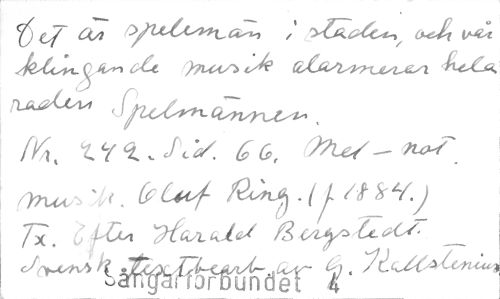 Det är spelemän i staden, och vår
klingande musik alarmerar hela
raden Spelmännen.
Nr. 242. Sid. 66. Mel-not.
musik. Oluf Ring. (f 1884.)
Tx. Efter Harald Bergstedt.
Svensk textbearb. av G. Kallstenius
Sångarförbundet 4